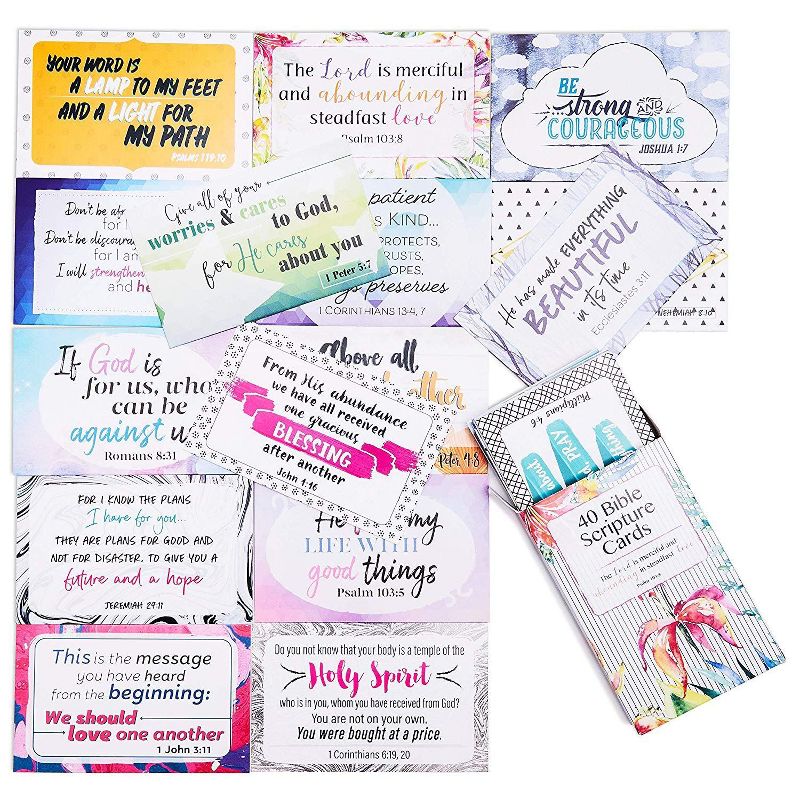 YOUR WORD IS
A LAMP TO MY FEET
AND A LIGHT FOR
MY PATH
PSALMS 119:10
The Lord is merciful
and abounding in
steadfast love
Psalm 103:8
BE
strong AND
COURAGEOUS
JOSHUA 1:7
Don't be
for I
Don't be
for I am
I will strengthen
and
Give all of your
worries & cares
to God,
for He cares
about you
1 Peter 5:7
patient
IS KIND...
PROTECTS,
TRUSTS,
preserves
1 CORINTHIANS 13:4, 7
He has made EVERYTHING
BEAUTIFUL
in its time
Ecclesiastes 3:11
NEHEMIAH 8:10
If God is
for us, who
can be
against
Romans 8:31
From His abundance
we have all received
one gracious
BLESSING
after another
John 1:16
Above all,
Peter 4:8
Philippians 4:6
about
PRAY
40 Bible
Scripture
Cards
The Lord is merciful and
abounding in steadfast love
Psalm 103:8
FOR I KNOW THE PLANS
I have for you...
THEY ARE PLANS FOR GOOD AND
NOT FOR DISASTER, TO GIVE YOU A
future and a hope
JEREMIAH 29:11
He my
LIFE WITH
good things
Psalm 103:5
This is the message
you have heard
from the beginning:
We should
love one another
1 John 3:11
Do you not know that your body is a temple of the
Holy Spirit
who is in you, whom you have received from God?
You are not on your own.
You were bought at a price.
1 Corinthians 6:19, 20